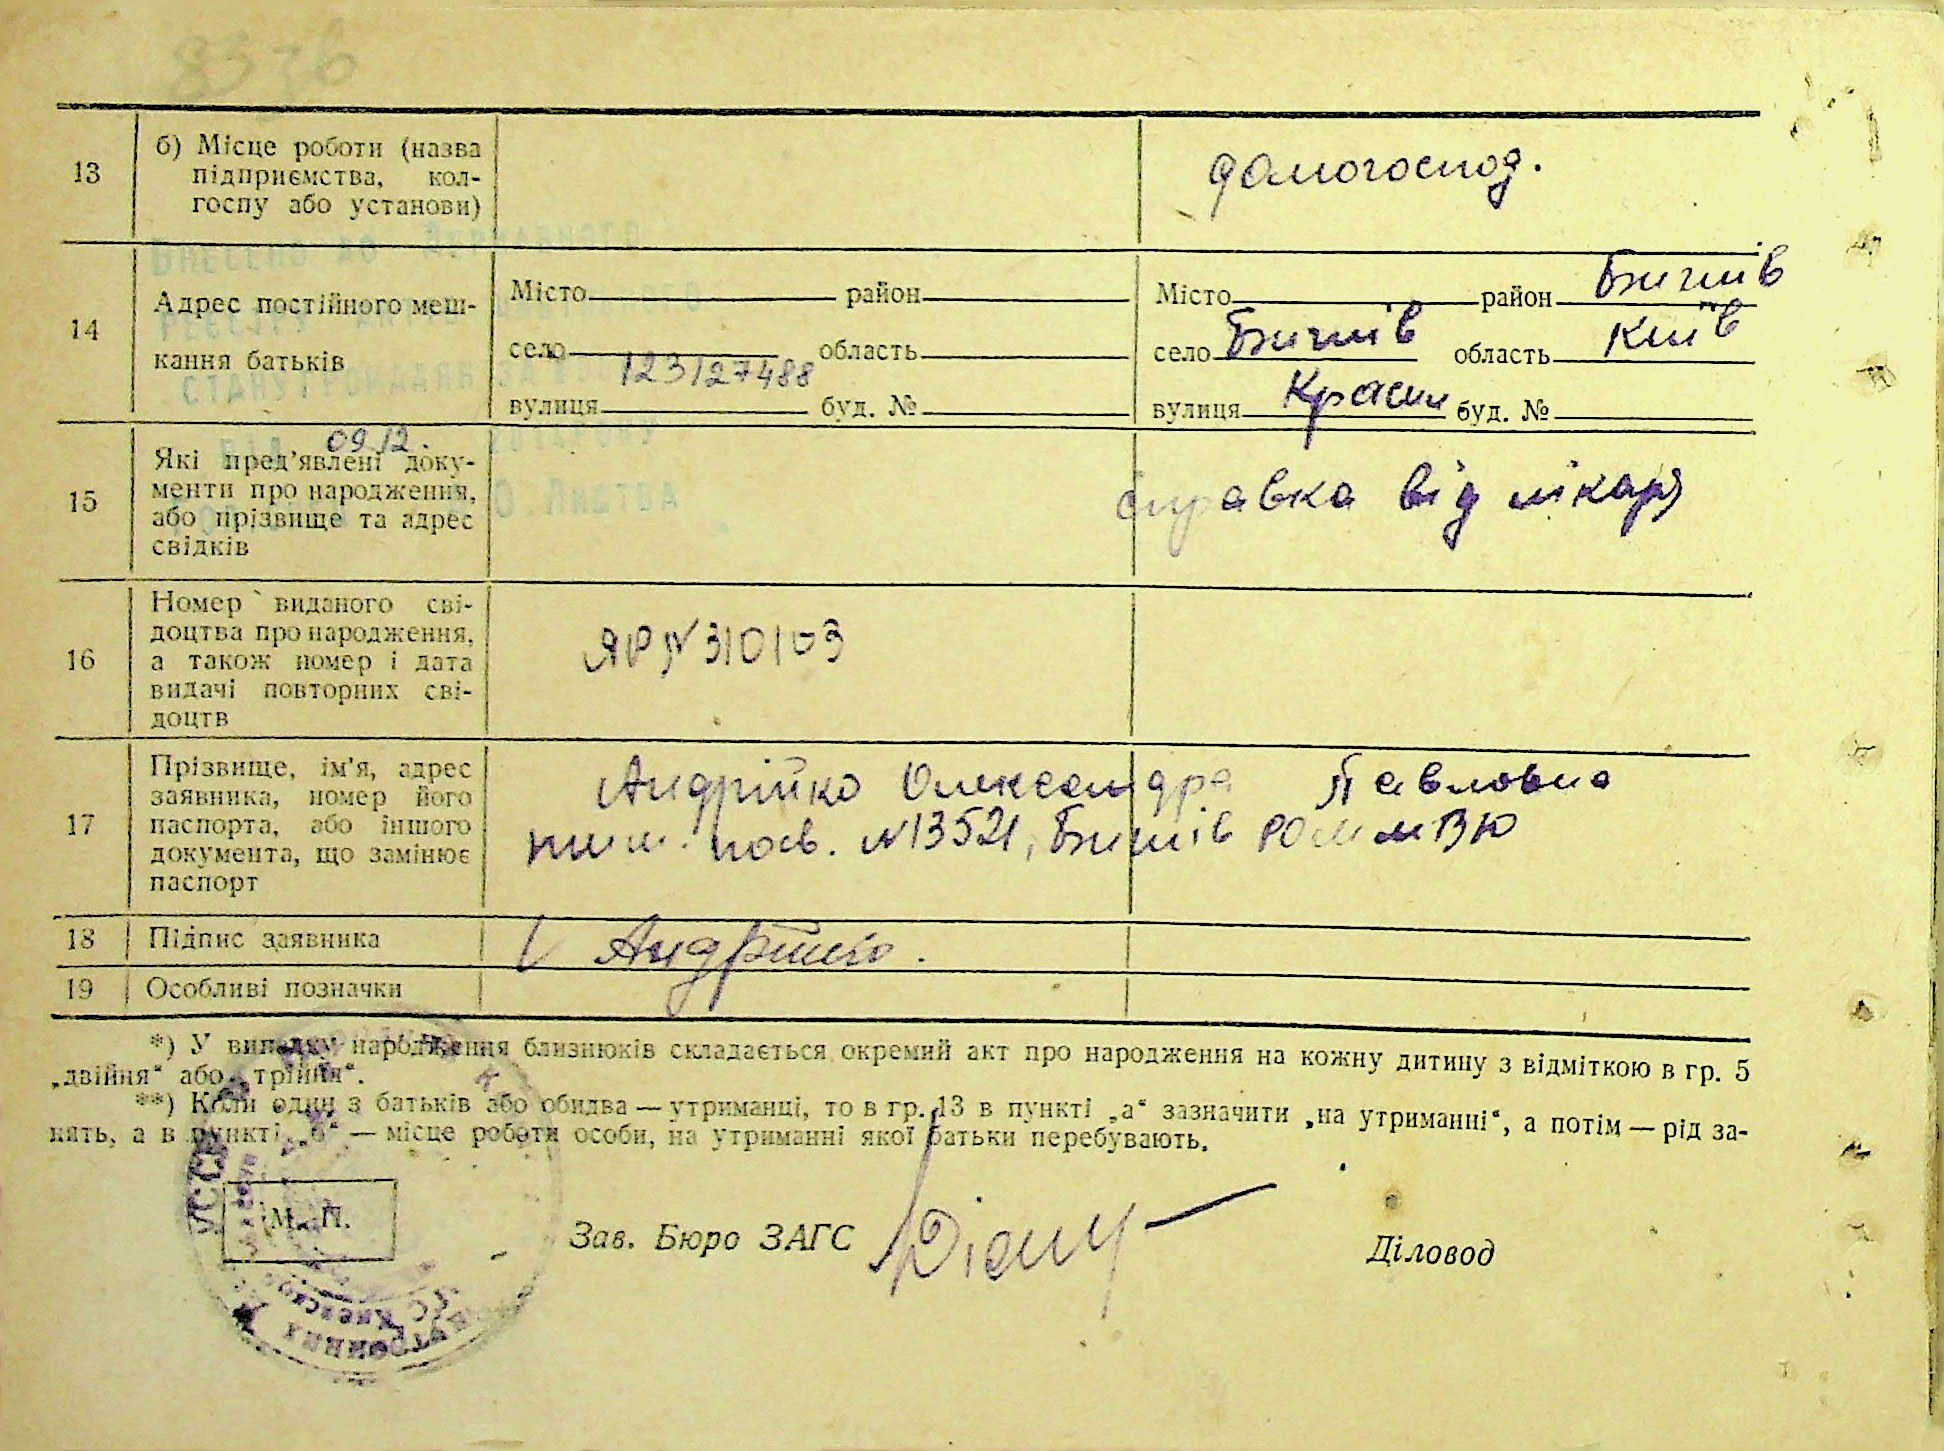 13
б) Місце роботи (назва
підприємства, кол-
госпу або установи)
домогоспод.
Внесено до Державного
14
Адрес постійного меш-
кання батьків
Місто район
село область
123127488
вулиця буд. №
Місто район Бишів
село Бишів область Київ
вулиця Красн буд. №
09.12.
15
Які пред'явлені доку-
менти про народження,
або прізвище та адрес
свідків
справка від лікаря
16
Номер виданого сві-
доцтва про народження,
а також номер і дата
видачі повторних сві-
доцтв
ЯР № 310103
17
Прізвище, ім'я, адрес
заявника, номер його
паспорта, або іншого
документа, що замінює
паспорт
Андрійко Олександра Павловна
посв. №13521, Бишів
18 Підпис заявника
19 Особливі позначки
*) У випадку народження близнюків складається окремий акт про народження на кожну дитину з відміткою в гр. 5
„двійня“ або „трійня“.
**) Коли один з батьків або обидва — утриманці, то в гр. 13 в пункті „а“ зазначити „на утриманні“, а потім — рід за-
нять, а в пункті „б“ — місце роботи особи, на утриманні якої батьки перебувають.
М. П.
Зав. Бюро ЗАГС
Діловод